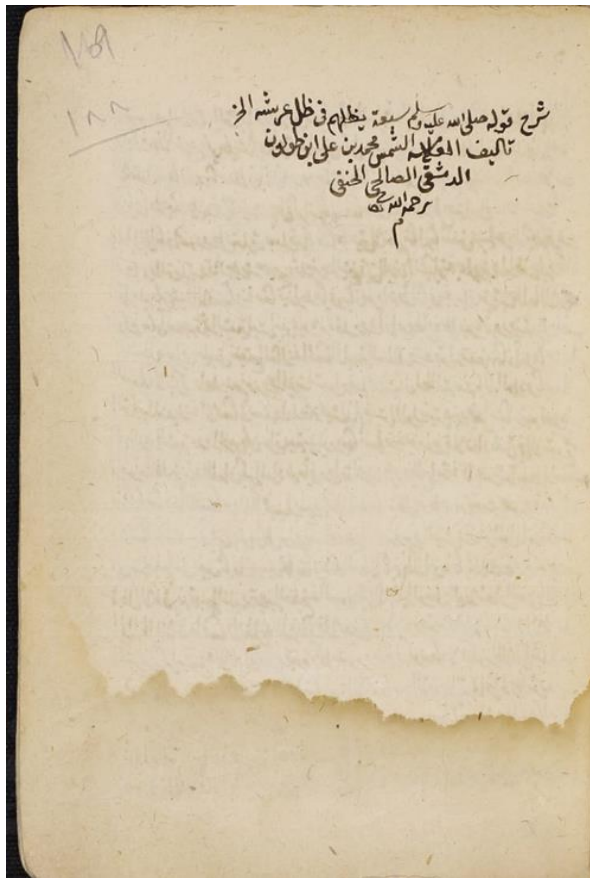 ١٥٩
١٨٨
شرح قوله صلى الله عليه وسلم سبعة يظلهم في ظل عرشه الخ
تاليف العلامة الشمس محمد بن علي ابن طولون
الدمشقي الصالحي الحنفي
رحمه الله تعا
م